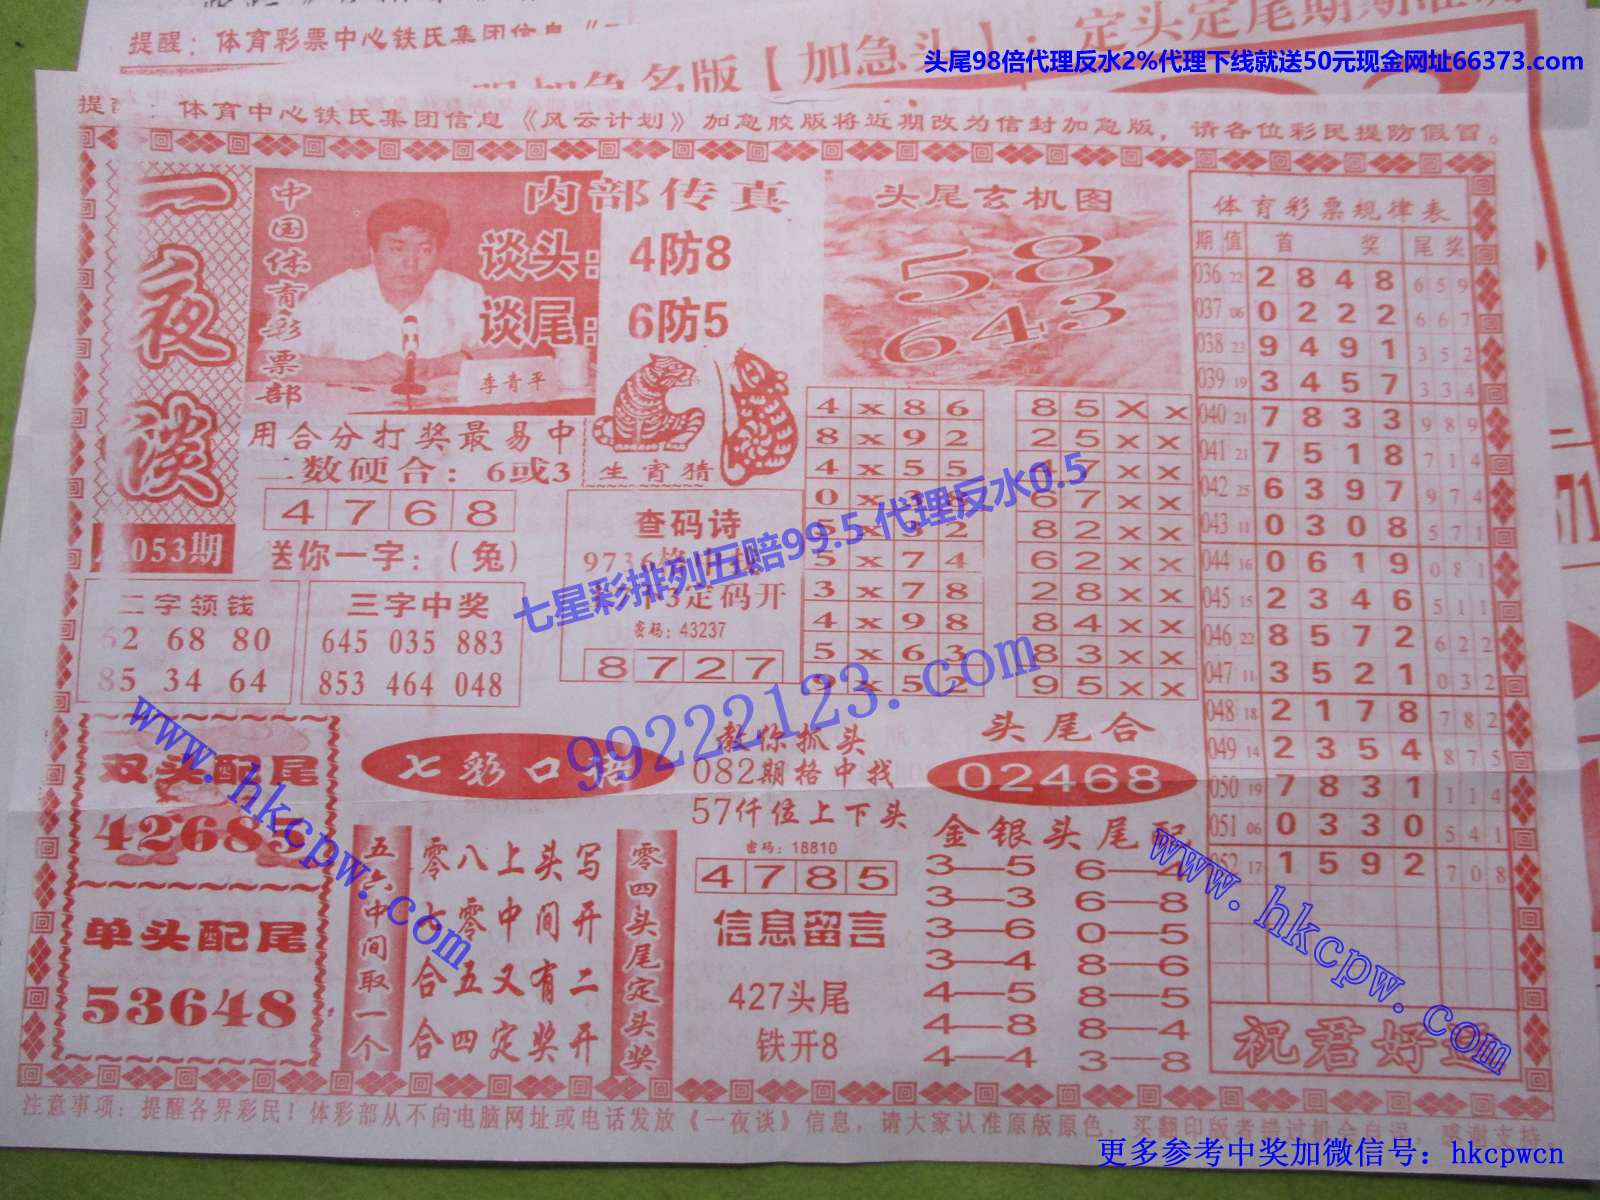 提醒：体育彩票中心铁氏集团信息《
明加急名版【加急头】：定头定尾期期准
头尾98倍代理反水2%代理下线就送50元现金网址66373.com
提醒：体育中心铁氏集团信息《风云计划》加急胶版将近期改为信封加急版，请各位彩民提防假冒。
一夜谈
053期
中国体育彩票部
李青平
内部传真
谈头：4防8
谈尾：6防5
生宵猜
头尾玄机图
58
643
用合分打奖最易中
二数硬合：6或3
4 7 6 8
送你一字：（兔）
二字领钱
62 68 80
85 34 64
三字中奖
645 035 883
853 464 048
查码诗
定码开
密码：43237
8 7 2 7
4 x 8 6
8 x 9 2
4 x 5 5
0 x 3 8
5 x 3 2
5 x 7 4
3 x 7 8
4 x 9 8
5 x 6 3
9 x 5 2
8 5 X x
2 5 x x
4 7 x x
6 7 x x
8 2 x x
6 2 x x
2 8 x x
8 4 x x
8 3 x x
9 5 x x
七星彩排列五赔99.5 代理反水0.5
99222123.com
www.hkcpw.com
双头配尾
42685
单头配尾
53648
七彩口语
五六中间取一个
零八上头写
七零中间开
合五又有二
合四定奖开
零四头尾定头奖
教你抓头
082期格中找
57仟位上下头
密码：18810
4 7 8 5
信息留言
427头尾
铁开8
头尾合
02468
金银头尾配
3—5 6—4
3—3 6—8
3—6 0—5
3—4 8—6
4—5 8—5
4—8 8—4
4—4 3—8
www.hkcpw.com
体育彩票规律表
期 值 首 奖 尾 奖
036 22 2 8 4 8 6 5 9
037 06 0 2 2 2 6 6 7
038 23 9 4 9 1 3 5 2
039 19 3 4 5 7 3 3 4
040 21 7 8 3 3 9 8 9
041 21 7 5 1 8 7 1 4
042 25 6 3 9 7 9 7 4
043 11 0 3 0 8 5 7 1
044 16 0 6 1 9 0 8 1
045 15 2 3 4 6 5 1 1
046 22 8 5 7 2 6 2 2
047 11 3 5 2 1 0 3 2
048 18 2 1 7 8 7 8 2
049 14 2 3 5 4 8 7 5
050 19 7 8 3 1 1 1 4
051 06 0 3 3 0 5 4 1
052 17 1 5 9 2 7 0 8
祝君好运
注意事项：提醒各界彩民！体彩部从不向电脑网址或电话发放《一夜谈》信息，请大家认准原版原色，买翻印版者错过机会自误，感谢支持。
更多参考中奖加微信号：hkcpwcn